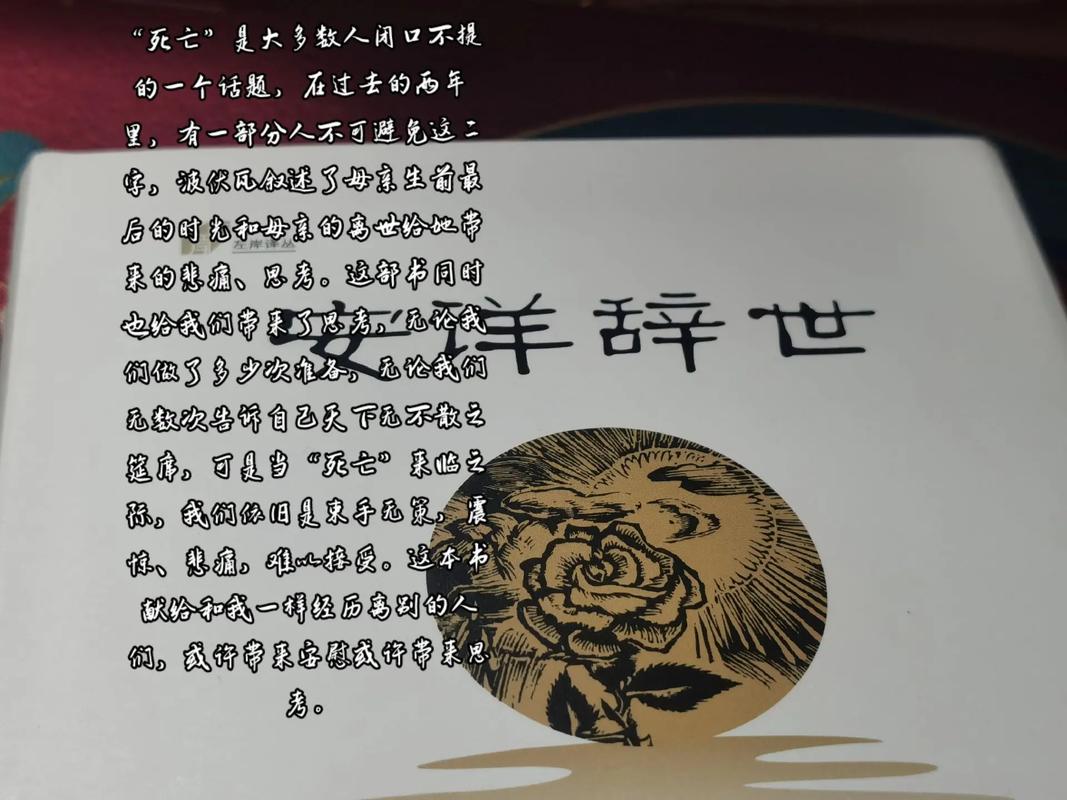 “死亡”是大多数人闭口不提
的一个话题，在过去的两年
里，有一部分人不可避免这二
字，波伏瓦叙述了母亲生前最
后的时光和母亲的离世给她带
来的悲痛、思考。这部书同时
也给我们带来了思考，无论我
们做了多少次准备，无论我们
无数次告诉自己天下无不散之
筵席，可是当“死亡”来临之
际，我们依旧是束手无策，震
惊、悲痛，难以接受。这本书
献给和我一样经历离别的人
们，或许带来安慰或许带来思
考。
左岸译丛
安详辞世